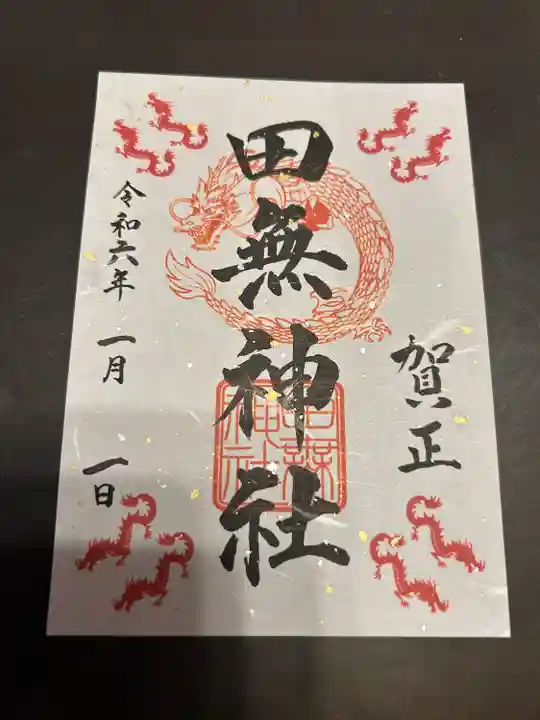 賀正
田無神社
田無神社
令和六年 一月 一日